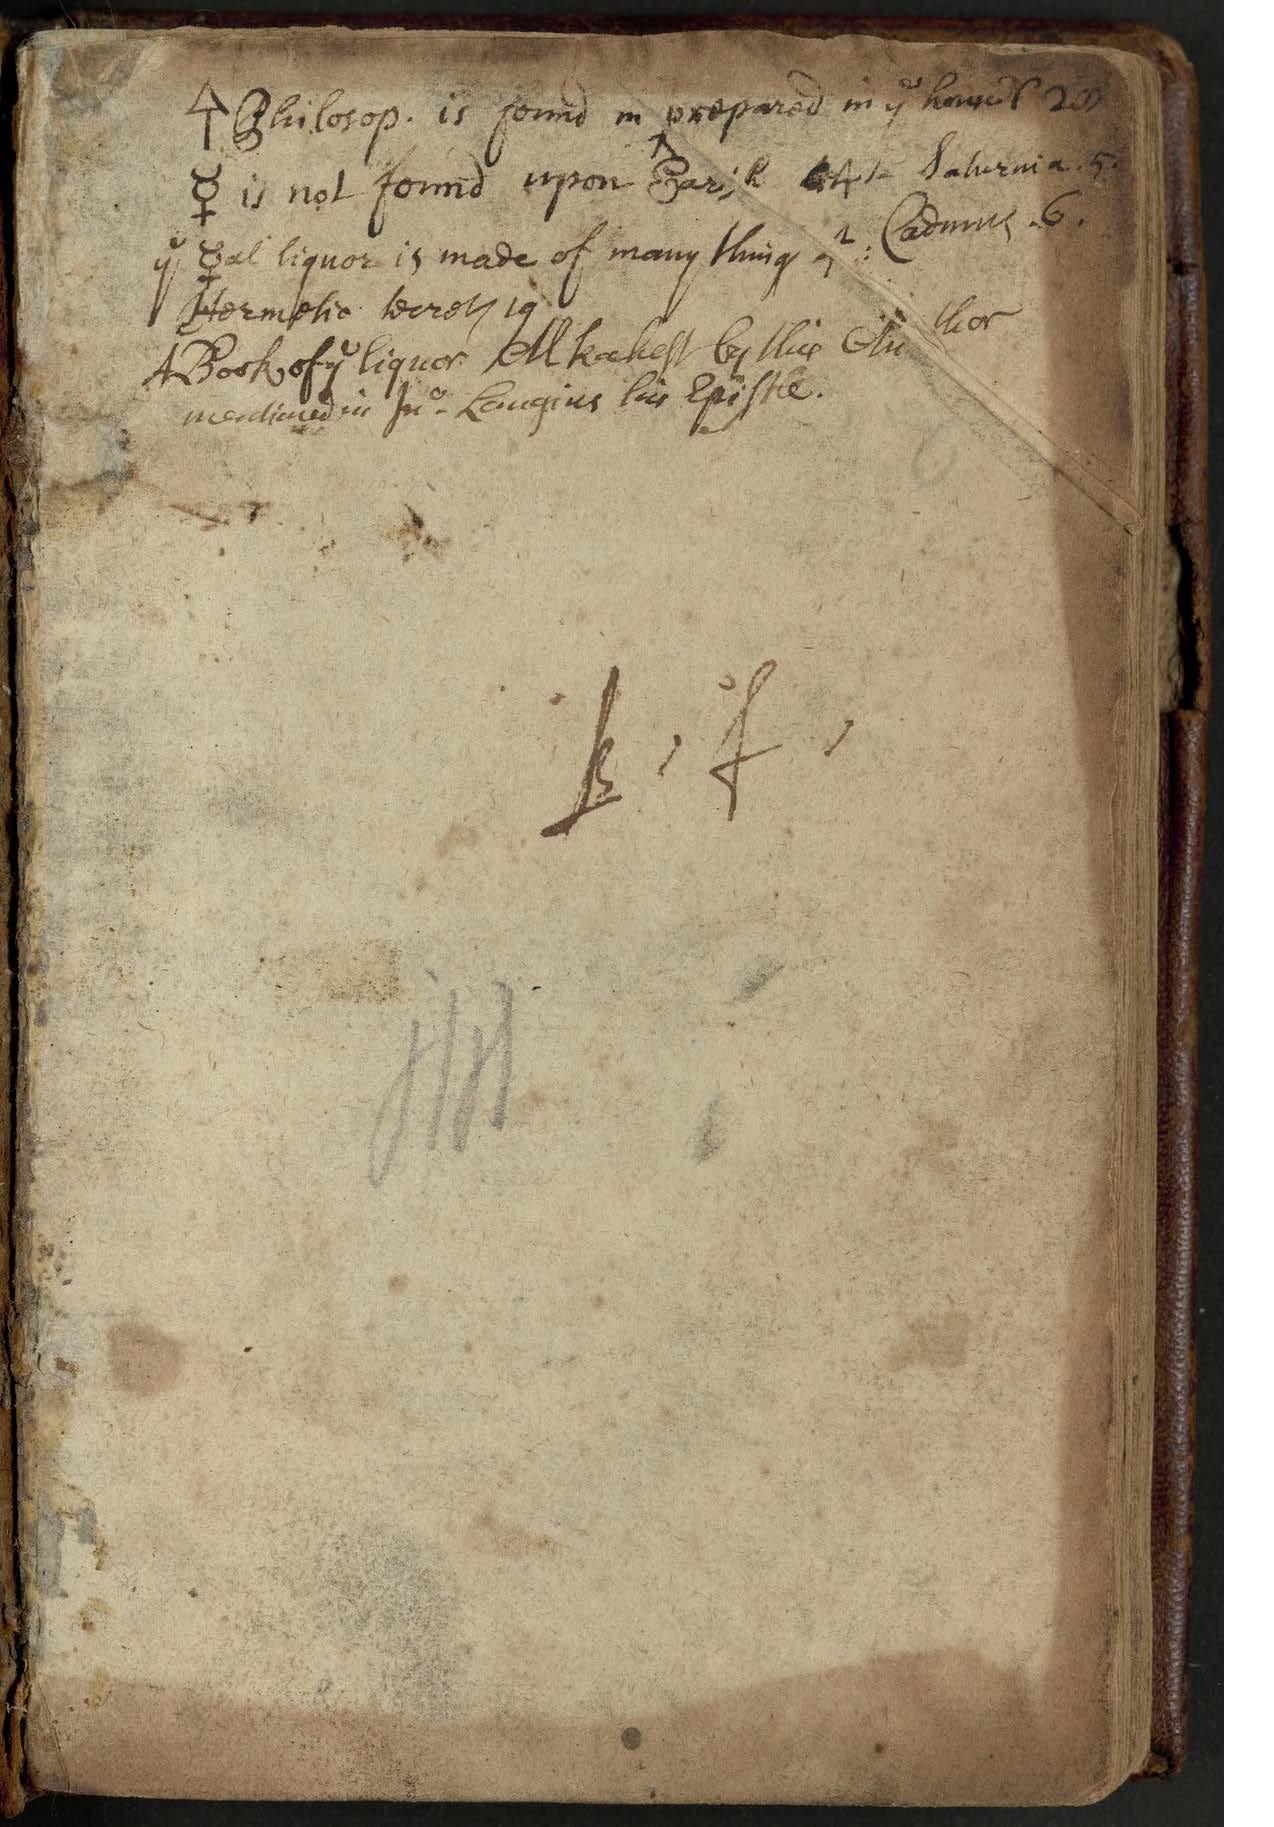 🜍 Philosop. is found in prepared in yͤ
☿ is not found upon Saturnia. 5.
yͤ ☿al liquor is made of many thing Cadmus. 6.
Hermetic secrets 19
A Book of yͤ liquor Alkahest by this Author
mentioned in Jnº. Langius his Epistle.